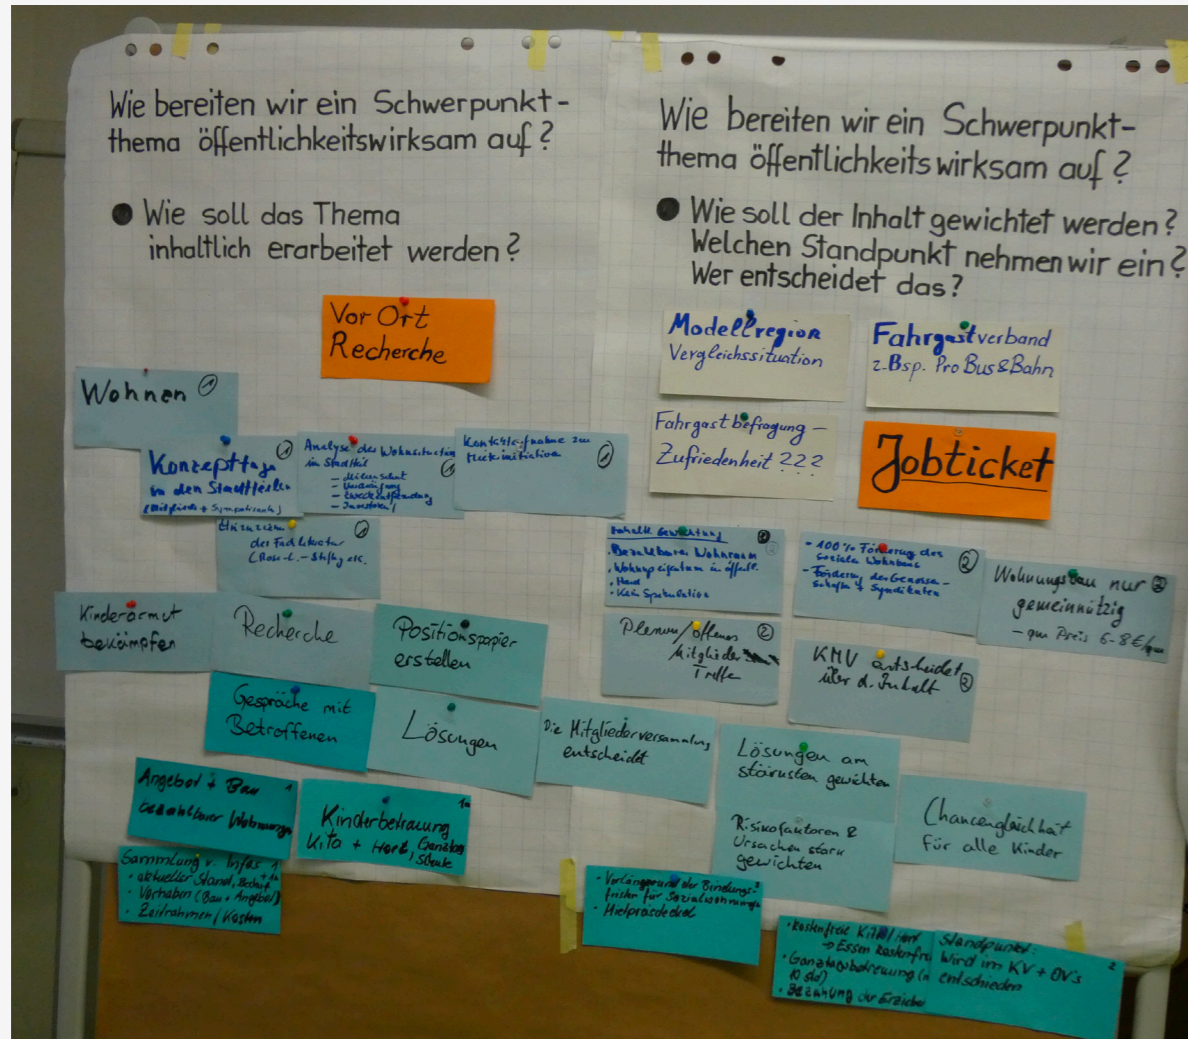 Wie bereiten wir ein Schwerpunkt-
thema öffentlichkeitswirksam auf?
Wie soll das Thema
inhaltlich erarbeitet werden?
Vor Ort
Recherche
Wohnen 1
Konzepttage 1
in den Stadtteilen
(Mitglieder + Sympatisanten)
Analyse der Wohnsituation
im Stadtteil 1
- Milieuschutz
- Verdrängung
- Zweckentfremdung
- Investoren
Kontaktaufnahme zu
Mietinitiativen 1
Hinzuziehen 1
der Fachliteratur
(Rosa-L.-Stiftg etc.
Kinderarmut
bekämpfen
Recherche
Positionspapier
erstellen
Gespräche mit
Betroffenen
Lösungen
Angebot + Bau 1
bezahlbarer Wohnungen
Kinderbetreuung 1a
Kita + Hort, Ganztags
schule
Sammlung v. Infos 1 + 1a
• aktueller Stand, Bedarf
• Vorhaben (Bau + Angebot)
• Zeitrahmen / Kosten
Wie bereiten wir ein Schwerpunkt-
thema öffentlichkeitswirksam auf?
Wie soll der Inhalt gewichtet werden?
Welchen Standpunkt nehmen wir ein?
Wer entscheidet das?
Modellregion
Vergleichssituation
Fahrgastverband
z.Bsp. Pro Bus & Bahn
Fahrgastbefragung –
Zufriedenheit ???
Jobticket
Inhaltl. Gewichtung 2
• Bezahlbarer Wohnraum
• Wohnungseigentum in öffentl.
• Hand
• Kein Spekulation
- 100% Förderung des
sozialen Wohnbaus 2
- Förderung der Genossen-
schaften + Syndikaten
Wohnungsbau nur 2
gemeinnützig
– qm Preis 6-8 €/qm
Plenum/offenes 2
Mitglieder
Treffen
KMV entscheidet
über d. Inhalt 2
Die Mitgliederversammlung
entscheidet
Lösungen am
stärksten gewichten
Risikofaktoren &
Ursachen stark
gewichten
Chancengleichheit
für alle Kinder
• Verlängerung der Bindungs- 2
fristen für Sozialwohnungen
• Mietpreisdeckel
• kostenfreie Kita / Hort
→ Essen kostenfrei
• Ganztagsbetreuung (
10 Std)
• Bezahlung der Erzieher
Standpunkt: 2
Wird im KV + OV's
entschieden